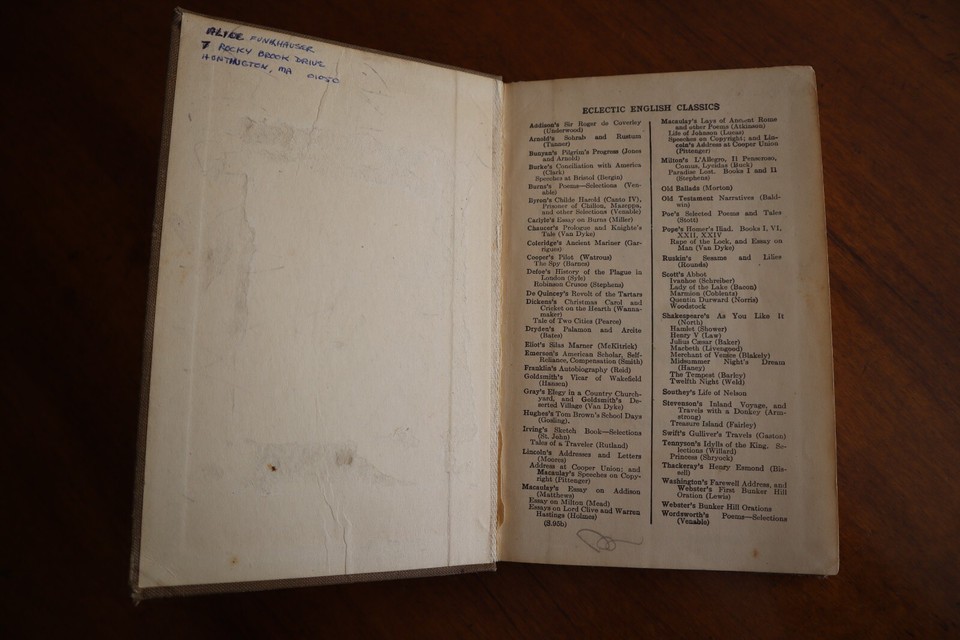 ALICE FUNKHAUSER
7 ROCKY BROOK DRIVE
HUNTINGTON, MA 01050
ECLECTIC ENGLISH CLASSICS
Addison's Sir Roger de Coverley
(Underwood)
Arnold's Sohrab and Rustum
(Tanner)
Bunyan's Pilgrim's Progress (Jones
and Arnold)
Burke's Conciliation with America
(Clark)
Speeches at Bristol (Bergin)
Burns's Poems—Selections (Ven-
able)
Byron's Childe Harold (Canto IV),
Prisoner of Chillon, Mazeppa,
and other Selections (Venable)
Carlyle's Essay on Burns (Miller)
Chaucer's Prologue and Knighte's
Tale (Van Dyke)
Coleridge's Ancient Mariner (Gar-
rigues)
Cooper's Pilot (Watrous)
The Spy (Barnes)
Defoe's History of the Plague in
London (Syle)
Robinson Crusoe (Stephens)
De Quincey's Revolt of the Tartars
Dickens's Christmas Carol and
Cricket on the Hearth (Wanna-
maker)
Tale of Two Cities (Pearce)
Dryden's Palamon and Arcite
(Bates)
Eliot's Silas Marner (McKitrick)
Emerson's American Scholar, Self-
Reliance, Compensation (Smith)
Franklin's Autobiography (Reid)
Goldsmith's Vicar of Wakefield
(Hansen)
Gray's Elegy in a Country Church-
yard, and Goldsmith's De-
serted Village (Van Dyke)
Hughes's Tom Brown's School Days
(Gosling).
Irving's Sketch Book—Selections
(St. John)
Tales of a Traveler (Rutland)
Lincoln's Addresses and Letters
(Moores)
Address at Cooper Union; and
Macaulay's Speeches on Copy-
right (Pittenger)
Macaulay's Essay on Addison
(Matthews)
Essay on Milton (Mead)
Essays on Lord Clive and Warren
Hastings (Holmes)
(S.95b)
Macaulay's Lays of Ancient Rome
and other Poems (Atkinson)
Life of Johnson (Lucas)
Speeches on Copyright; and Lin-
coln's Address at Cooper Union
(Pittenger)
Milton's L'Allegro, Il Penseroso,
Comus, Lycidas (Buck)
Paradise Lost. Books I and II
(Stephens)
Old Ballads (Morton)
Old Testament Narratives (Bald-
win)
Poe's Selected Poems and Tales
(Stott)
Pope's Homer's Iliad. Books I, VI,
XXII, XXIV
Rape of the Lock, and Essay on
Man (Van Dyke)
Ruskin's Sesame and Lilies
(Rounds)
Scott's Abbot
Ivanhoe (Schreiber)
Lady of the Lake (Bacon)
Marmion (Coblentz)
Quentin Durward (Norris)
Woodstock
Shakespeare's As You Like It
(North)
Hamlet (Shower)
Henry V (Law)
Julius Cæsar (Baker)
Macbeth (Livengood)
Merchant of Venice (Blakely)
Midsummer Night's Dream
(Haney)
The Tempest (Barley)
Twelfth Night (Weld)
Southey's Life of Nelson
Stevenson's Inland Voyage, and
Travels with a Donkey (Arm-
strong)
Treasure Island (Fairley)
Swift's Gulliver's Travels (Gaston)
Tennyson's Idylls of the King. Se-
lections (Willard)
Princess (Shryock)
Thackeray's Henry Esmond (Bis-
sell)
Washington's Farewell Address, and
Webster's First Bunker Hill
Oration (Lewis)
Webster's Bunker Hill Orations
Wordsworth's Poems—Selections
(Venable)